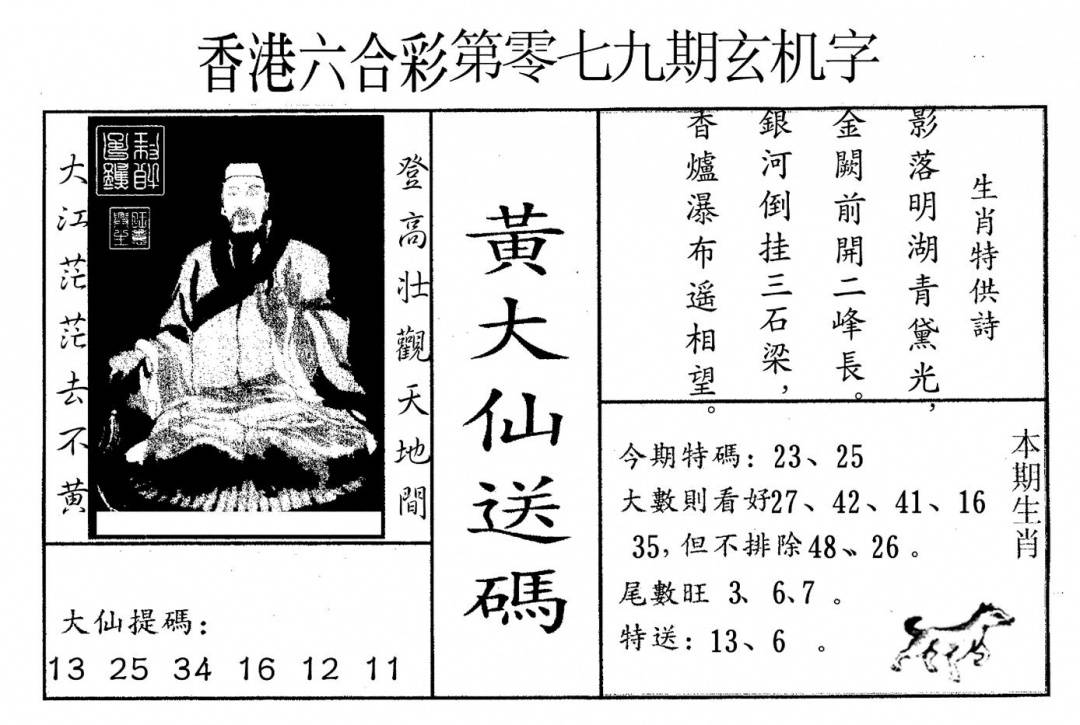 香港六合彩第零七九期玄机字
登高壯觀天地間
大江茫茫去不黃
大仙提碼：
13 25 34 16 12 11
黃大仙送碼
生肖特供詩
影落明湖青黛光，
金闕前開二峰長。
銀河倒挂三石梁，
香爐瀑布遥相望。
本期生肖
今期特碼：23、25
大數則看好27、42、41、16
35，但不排除48、26。
尾數旺 3、6、7。
特送：13、6 。